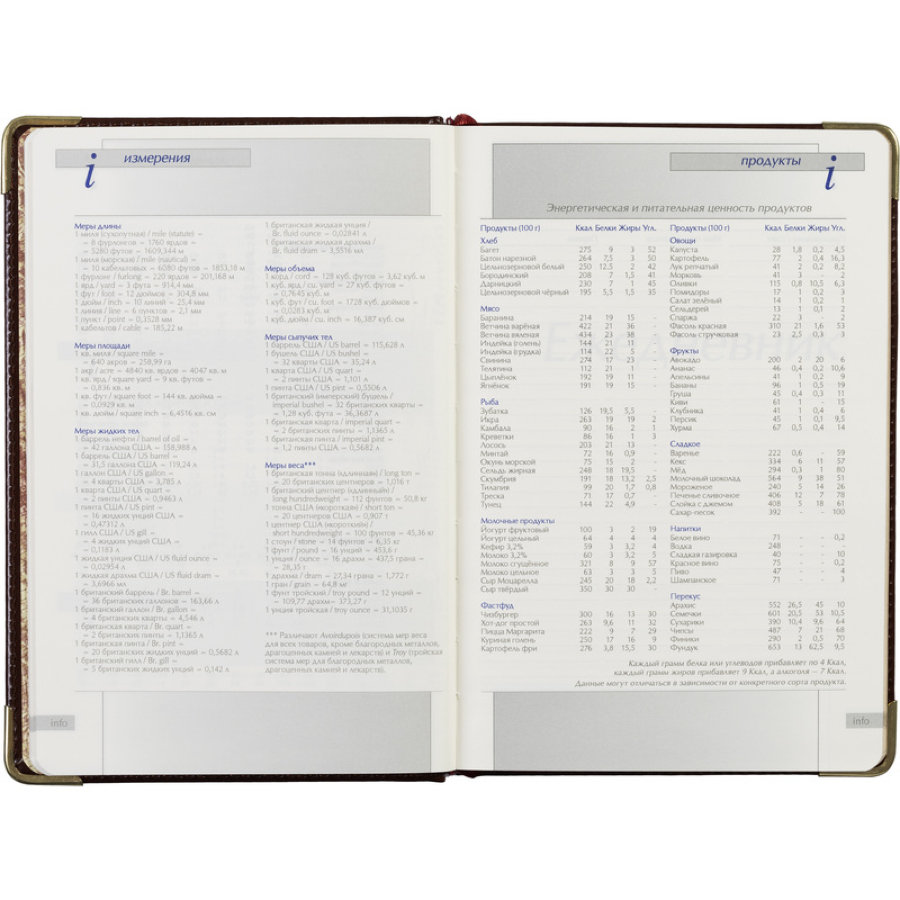 i измерения
Меры длины
1 миля (сухопутная) / mile (statute) =
= 8 фурлонгов = 1760 ярдов =
= 5280 футов = 1609,344 м
1 миля (морская) / mile (nautical) =
= 10 кабельтовых = 6080 футов = 1853,18 м
1 фурлонг / furlong = 220 ярдов = 201,168 м
1 ярд / yard = 3 фута = 914,4 мм
1 фут / foot = 12 дюймов = 304,8 мм
1 дюйм / inch = 10 линий = 25,4 мм
1 линия / line = 6 пунктов = 2,1 мм
1 пункт / point = 0,3528 мм
1 кабельтов / cable = 185,22 м
Меры площади
1 кв. миля / square mile =
= 640 акров = 258,99 га
1 акр / acre = 4840 кв. ярдов = 4047 кв. м
1 кв. ярд / square yard = 9 кв. футов =
= 0,836 кв. м
1 кв. фут / square foot = 144 кв. дюйма =
= 0,0929 кв. м
1 кв. дюйм / square inch = 6,4516 кв. см
Меры жидких тел
1 баррель нефти / barrel of oil =
= 42 галлона США = 158,988 л
1 баррель США / US barrel =
= 31,5 галлона США = 119,24 л
1 галлон США / US gallon =
= 4 кварты США = 3,785 л
1 кварта США / US quart =
= 2 пинты США = 0,9463 л
1 пинта США / US pint =
= 16 жидких унций США =
= 0,47312 л
1 гилл США / US gill =
= 4 жидких унции США =
= 0,1183 л
1 жидкая унция США / US fluid ounce =
= 0,02954 л
1 жидкая драхма США / US fluid dram =
= 3,6966 мл
1 британский баррель / Br. barrel =
= 36 британских галлонов = 163,66 л
1 британский галлон / Br. gallon =
= 4 британских кварты = 4,546 л
1 британская кварта / Br. quart =
= 2 британских пинты = 1,1365 л
1 британская пинта / Br. pint =
= 20 британских жидких унций = 0,5682 л
1 британский гилл / Br. gill =
= 5 британских жидких унций = 0,142 л
1 британская жидкая унция /
Br. fluid ounce = 0,02841 л
1 британская жидкая драхма /
Br. fluid dram = 3,5516 мл
Меры объема
1 корд / cord = 128 куб. футов = 3,62 куб. м
1 куб. ярд / cu. yard = 27 куб. футов =
= 0,7645 куб. м
1 куб. фут / cu. foot = 1728 куб. дюймов =
= 0,0283 куб. м
1 куб. дюйм / cu. inch = 16,387 куб. см
Меры сыпучих тел
1 баррель США / US barrel = 115,628 л
1 бушель США / US bushel =
= 32 кварты США = 35,24 л
1 кварта США / US quart =
= 2 пинты США = 1,101 л
1 пинта США / US pint = 0,5506 л
1 британский (имперский) бушель /
imperial bushel = 32 британских кварты =
= 1,28 куб. фута = 36,3687 л
1 британская кварта / imperial quart =
= 2 британских пинты = 1,1365 л
1 британская пинта / imperial pint =
= 1,2 пинты США = 0,5682 л
Меры веса***
1 британская тонна (длинная) / long ton =
= 20 британских центнеров = 1,016 т
1 британский центнер (длинный) /
long hundredweight = 112 фунтов = 50,8 кг
1 тонна США (короткая) / short ton =
= 20 центнеров США = 0,907 т
1 центнер США (короткий) /
short hundredweight = 100 фунтов = 45,36 кг
1 стоун / stone = 14 фунтов = 6,35 кг
1 фунт / pound = 16 унций = 453,6 г
1 унция / ounce = 16 драхм = 437,5 грана =
= 28,35 г
1 драхма / dram = 27,34 грана = 1,772 г
1 гран / grain = 64,8 мг
1 фунт тройский / troy pound = 12 унций =
= 109,77 драхм = 373,27 г
1 унция тройская / troy ounce = 31,1035 г
*** Различают Avoirdupois (система мер веса
для всех товаров, кроме благородных металлов,
драгоценных камней и лекарств) и Troy (тройская
система мер для благородных металлов,
драгоценных камней и лекарств).
info
продукты i
Энергетическая и питательная ценность продуктов
Продукты (100 г) Ккал Белки Жиры Угл.
Хлеб
Багет 275 9 3 52
Батон нарезной 264 7,5 3 50
Цельнозерновой белый 250 12,5 2 42
Бородинский 208 7 1,5 41
Дарницкий 230 7 1 45
Цельнозерновой чёрный 195 5,5 1,5 35
Мясо
Баранина 214 19 15 -
Ветчина варёная 422 21 36 -
Ветчина вяленая 434 23 38 -
Индейка (голень) 144 21 11 -
Индейка (грудка) 114 22 5 -
Свинина 274 17 23 -
Телятина 112 21 1 -
Цыплёнок 192 19 11 -
Ягнёнок 191 19 15 -
Рыба
Зубатка 126 19,5 5,5 -
Икра 263 19 19 2
Камбала 90 16 2 1
Креветки 86 16 1 3
Лосось 203 21 13 -
Минтай 72 16 0,9 -
Окунь морской 75 15 2 -
Сельдь жирная 248 18 19,5 -
Скумбрия 191 18 13,2 2,5
Тилапия 99 20 1,7 0,8
Треска 71 17 0,7 -
Тунец 144 22 4,9 -
Молочные продукты
Йогурт фруктовый 100 3 2 19
Йогурт цельный 64 4 4 4
Кефир 3,2% 59 3 3,2 4
Молоко 3,2% 60 3 3,2 5
Молоко сгущённое 321 8 9 57
Молоко цельное 63 3 3 5
Сыр Моцарелла 245 20 18 2,2
Сыр твёрдый 350 30 30 -
Фастфуд
Чизбургер 300 16 13 30
Хот-дог простой 263 9,6 11 32
Пицца Маргарита 222 9 7 29
Куриная голень 250 17 16 9
Картофель фри 276 3,8 15,5 30
Продукты (100 г) Ккал Белки Жиры Угл.
Овощи
Капуста 28 1,8 0,2 4,5
Картофель 77 2 0,4 16,3
Лук репчатый 41 2 0,2 8,2
Морковь 41 3 - 2
Оливки 115 0,8 10,5 6,3
Помидоры 17 1 0,2 3
Салат зелёный 14 1 0,2 1
Сельдерей 13 1 0,1 2
Спаржа 22 3 - 2
Фасоль красная 310 21 1,6 53
Фасоль стручковая 23 2,5 0,3 3
Фрукты
Авокадо 200 2 20 6
Ананас 46 0,4 0,2 10,6
Апельсины 41 1 - 9
Бананы 96 1 0,5 19
Груша 45 0,4 0,3 11
Киви 61 1 - 15
Клубника 41 1 0,4 6
Персик 45 1 0,1 9,5
Хурма 67 0,5 0,4 14
Сладкое
Варенье 222 0,6 - 59
Кекс 334 6 11 57
Мёд 294 0,3 1 80
Молочный шоколад 564 9 38 51
Мороженое 240 5 14 26
Печенье сливочное 406 12 7 78
Слойка с джемом 408 5 18 61
Сахар-песок 392 - - 100
Напитки
Белое вино 71 - - 0,2
Водка 248 - - -
Сладкая газировка 40 - - 10
Красное вино 75 - - 0,2
Пиво 47 - - 4
Шампанское 71 - - 3
Перекус
Арахис 552 26,5 45 10
Семечки 601 20,5 53 10,5
Сухарики 390 10,4 9,6 64
Чипсы 487 7 21 68
Финики 290 2 0,5 70
Фундук 653 13 62,5 9,5
Каждый грамм белка или углеводов прибавляет по 4 Ккал,
каждый грамм жиров прибавляет 9 Ккал, а алкоголя – 7 Ккал.
Данные могут отличаться в зависимости от конкретного сорта продукта.
info